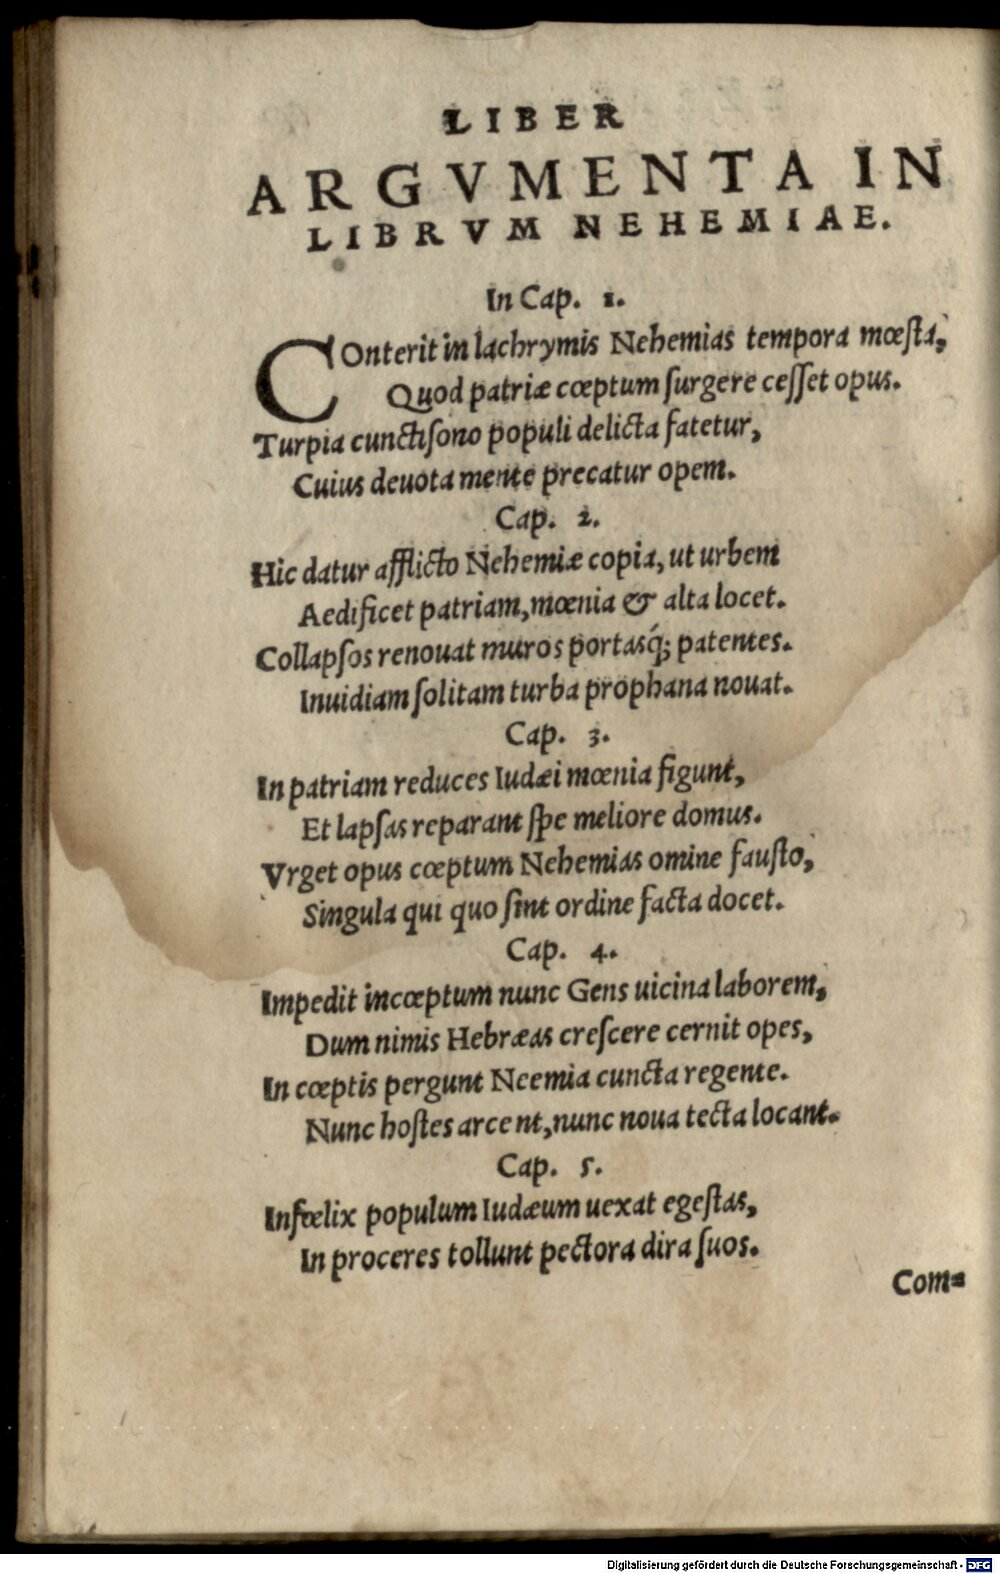 LIBER
ARGVMENTA IN
LIBRVM NEHEMIAE.
In Cap. 1.
COnterit in lachrymis Nehemias tempora mœſta,
Quod patriæ cœptum ſurgere ceſſet opus.
Turpia cunctiſono populi delicta fatetur,
Cuius deuota mente precatur opem.
Cap. 2.
Hic datur afflicto Nehemiæ copia, ut urbem
Aedificet patriam, mœnia & alta locet.
Collapſos renouat muros portasq́; patentes.
Inuidiam ſolitam turba prophana nouat.
Cap. 3.
In patriam reduces Iudæi mœnia figunt,
Et lapſas reparant ſpe meliore domus.
Vrget opus cœptum Nehemias omine fauſto,
Singula qui quo ſint ordine facta docet.
Cap. 4.
Impedit incœptum nunc Gens uicina laborem,
Dum nimis Hebræas creſcere cernit opes,
In cœptis pergunt Neemia cuncta regente.
Nunc hoſtes arcent, nunc noua tecta locant.
Cap. 5.
Infœlix populum Iudæum uexat egeſtas,
In proceres tollunt pectora dira ſuos.
Com=
Digitalisierung gefördert durch die Deutsche Forschungsgemeinschaft - DFG